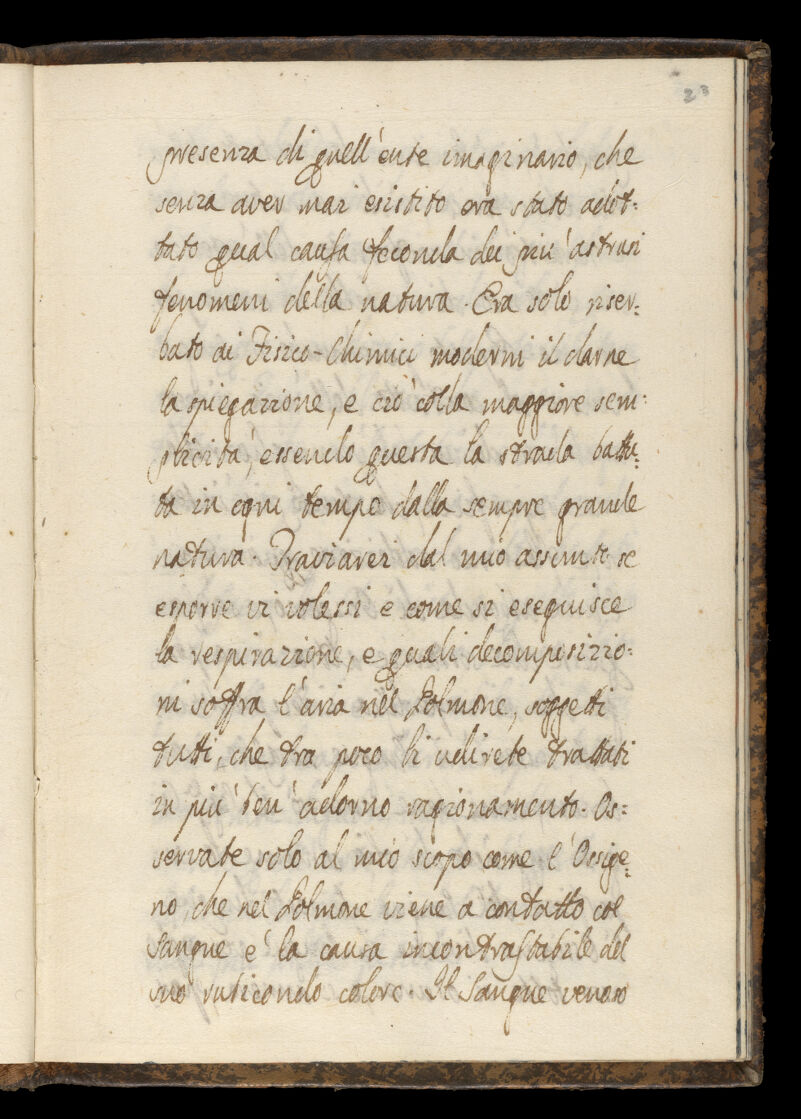 23
presenza di quell'ente imaginario, che
senza aver mai esistito era stato adot:
tato qual causa feconda dei più astrusi
fenomeni della natura. Era solo riser:
bato ai Fisico-Chimici moderni il darne
la spiegazione, e ciò colla maggiore sem:
plicità, essendo questa la strada battu:
ta in ogni tempo dalla sempre grande
natura. Traviarei dal mio assunto se
esporre vi volessi e come si eseguisce
la respirazione, e quali decomposizio:
ni soffra l'aria nel Polmone, soggetti
tutti, che tra poco li udirete trattati
in più ben' adorno ragionamento. Os:
servate solo al mio scopo come l'Ossige:
no, che nel Polmone viene a contatto col
Sangue e' la causa incontrastabile del
suo rubicondo colore. Il Sangue venoso